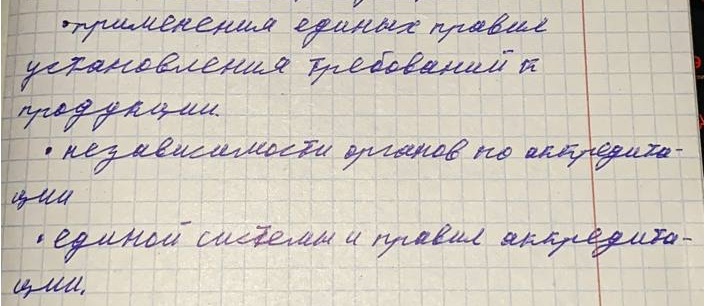 •применения единых правил
установления требований к
продукции.
• независимости органов по аккредита-
ции
• единой системы и правил аккредита-
ции.